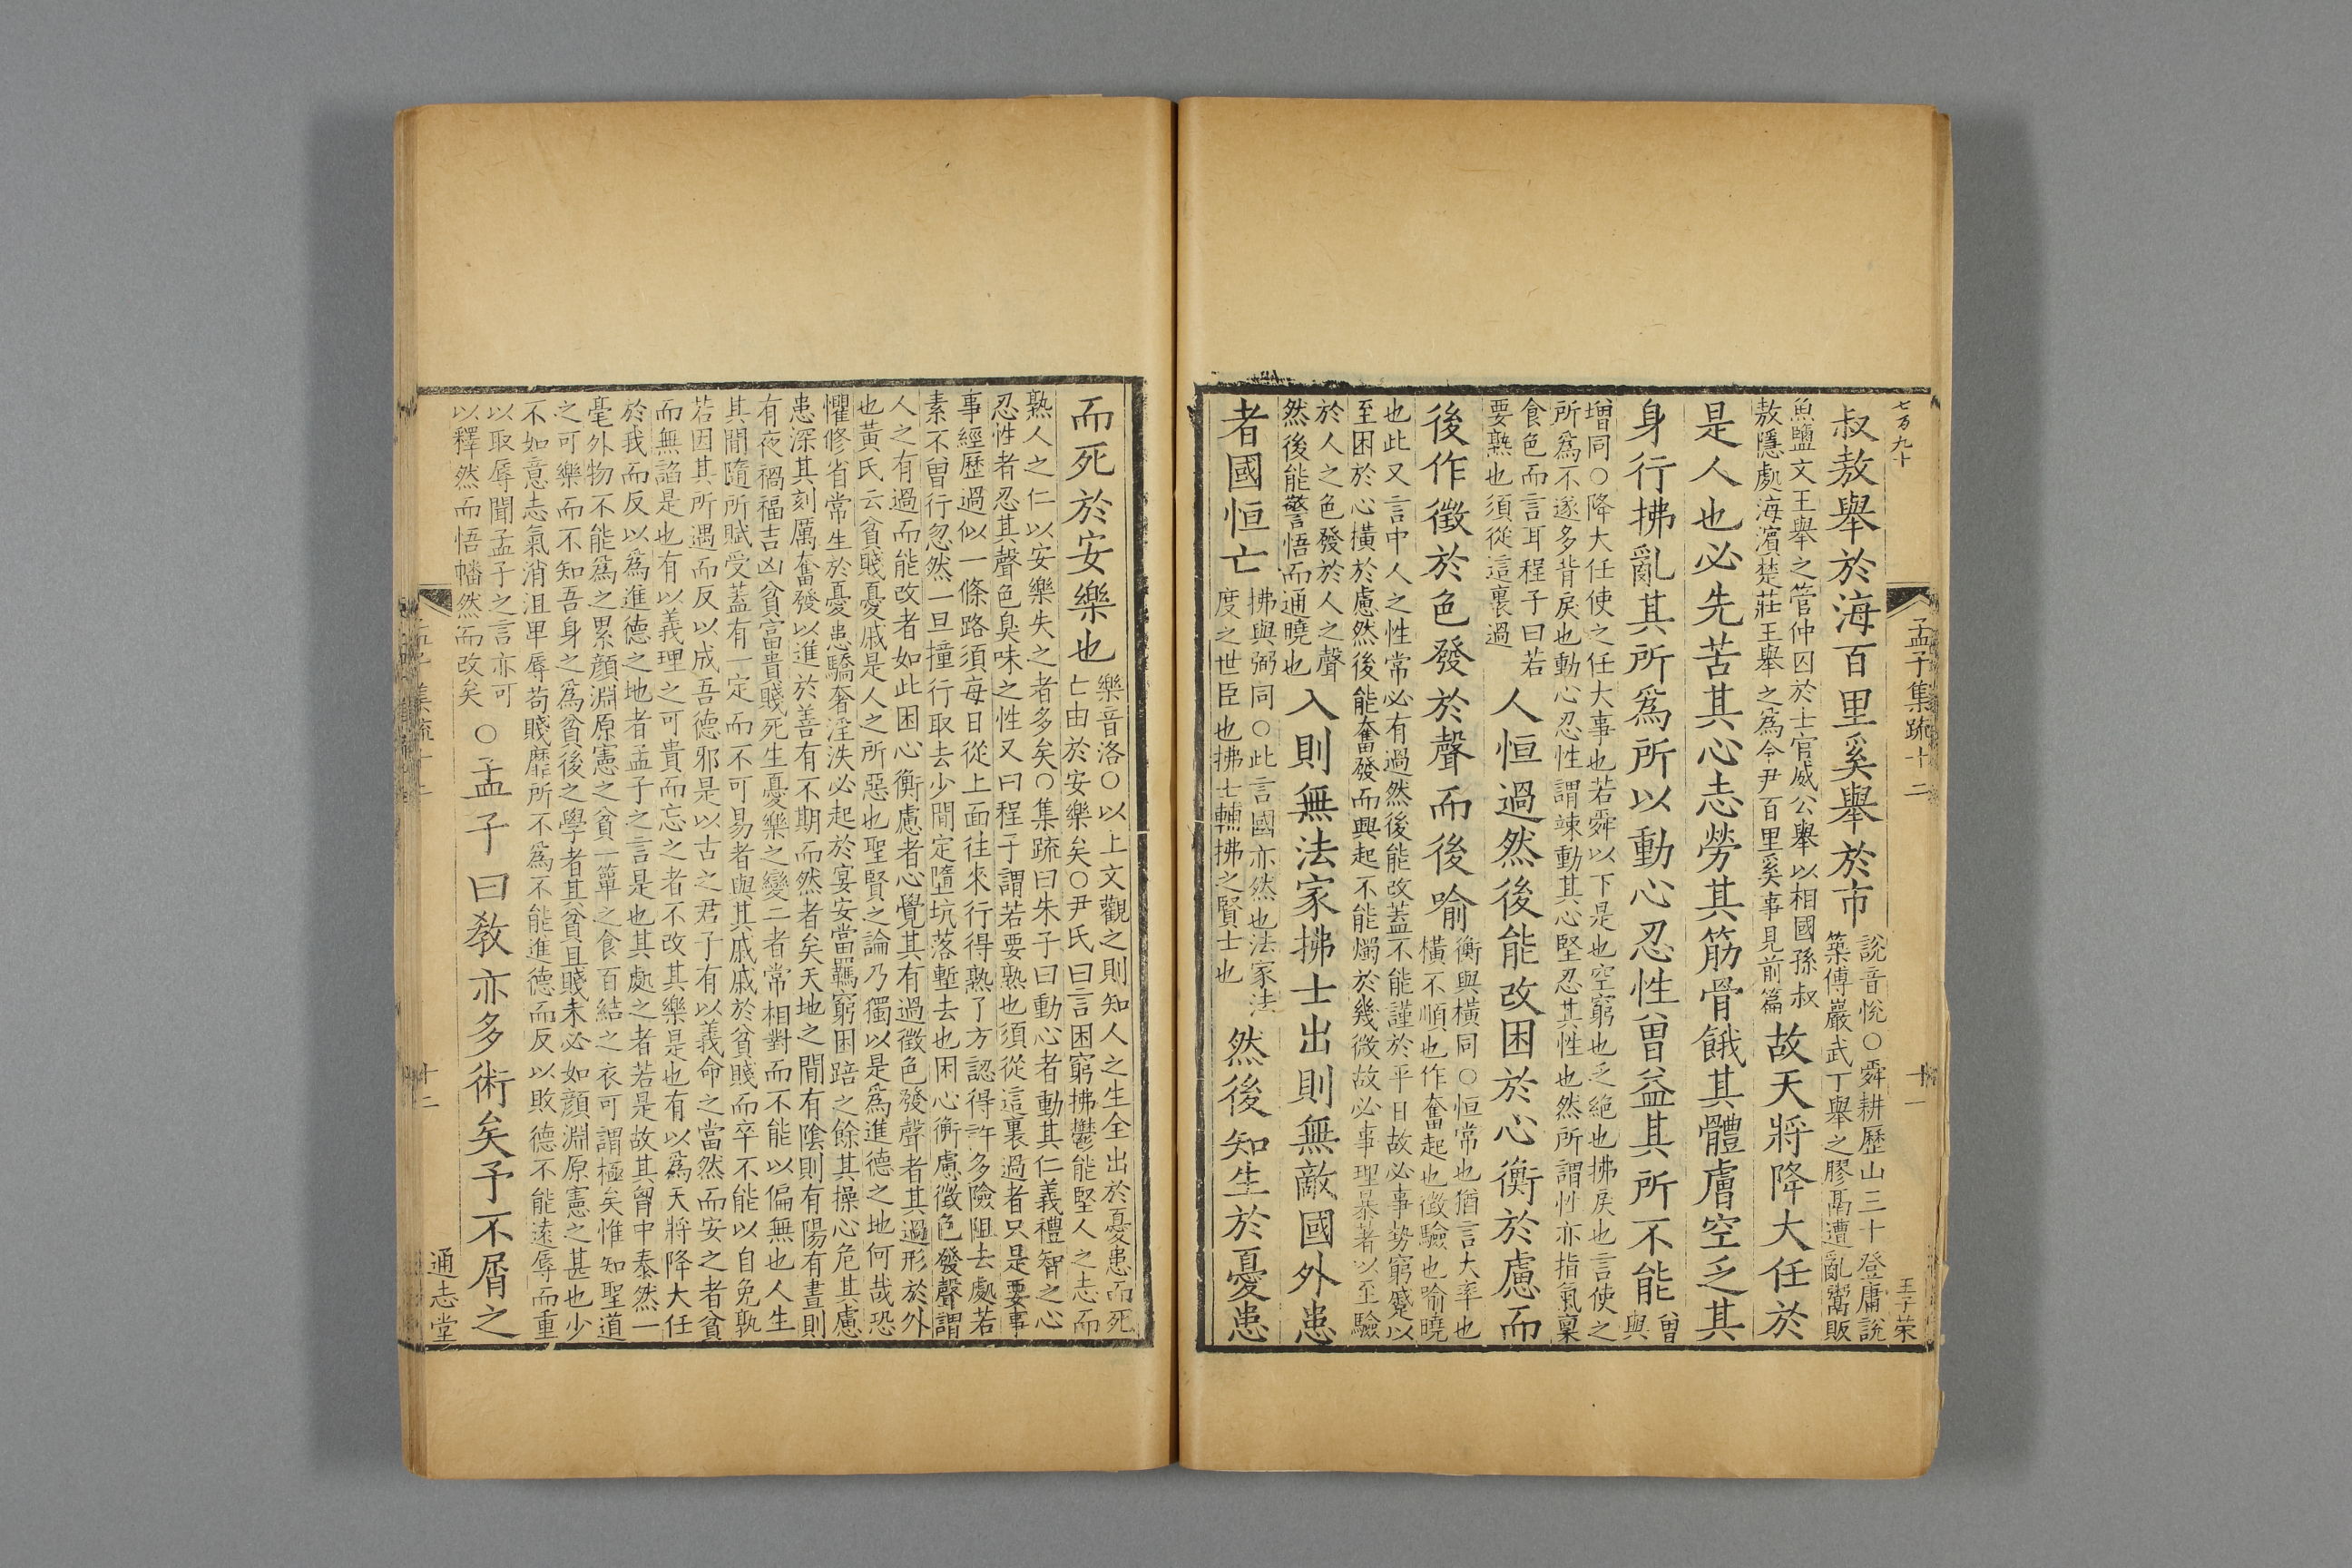 七百九十
孟子集疏十二
十一
王子荣
叔敖舉於海百里奚舉於市
說音悅○舜耕歷山三十登庸說
築傅巖武丁舉之膠鬲遭亂鬻販
魚鹽文王舉之管仲囚於士官威公舉以相國孫叔
敖隱處海濱楚莊王舉之爲令尹百里奚事見前篇
故天將降大任於
是人也必先苦其心志勞其筋骨餓其體膚空乏其
身行拂亂其所爲所以動心忍性曾益其所不能
曾
與
增同○降大任使之任大事也若舜以下是也空窮也乏絕也拂戾也言使之
所爲不遂多背戾也動心忍性謂竦動其心堅忍其性也然所謂性亦指氣稟
食色而言耳程子曰若
要熟也須從這裏過
人恒過然後能改困於心衡於慮而
後作徵於色發於聲而後喻
衡與橫同○恒常也猶言大率也
橫不順也作奮起也徵驗也喻曉
也此又言中人之性常必有過然後能改蓋不能謹於平日故必事勢窮蹙以
至困於心橫於慮然後能奮發而興起不能燭於幾微故必事理暴著以至驗
於人之色發於人之聲
然後能警悟而通曉也
入則無法家拂士出則無敵國外患
者國恒亡
拂與弼同○此言國亦然也法家法
度之世臣也拂士輔拂之賢士也
然後知生於憂患
而死於安樂也
樂音洛○以上文觀之則知人之生全出於憂患而死
亡由於安樂矣○尹氏曰言困窮拂鬱能堅人之志而
熟人之仁以安樂失之者多矣○集疏曰朱子曰動心者動其仁義禮智之心
忍性者忍其聲色臭味之性又曰程子謂若要熟也須從這裏過者只是要事
事經歷過似一條路須每日從上面往來行得熟了方認得許多險阻去處若
素不曾行忽然一旦撞行取去少間定墮坑落塹去也困心衡慮徵色發聲謂
人之有過而能改者如此困心衡慮者心覺其有過徵色發聲者其過形於外
也黃氏云貧賤憂戚是人之所惡也聖賢之論乃獨以是爲進德之地何哉恐
懼修省常生於憂患驕奢淫泆必起於宴安當羈窮困踣之餘其操心危其慮
患深其刻厲奮發以進於善有不期而然者矣天地之間有陰則有陽有晝則
有夜禍福吉凶貧富貴賤死生憂樂之變二者常相對而不能以偏無也人生
其間隨所賦受蓋有一定而不可易者與其戚戚於貧賤而卒不能以自免孰
若因其所遇而反以成吾德邪是以古之君子有以義命之當然而安之者貧
而無諂是也有以義理之可貴而忘之者不改其樂是也有以爲天將降大任
於我而反以爲進德之地者孟子之言是也其處之者若是故其胷中泰然一
毫外物不能爲之累顏淵原憲之貧一簞之食百結之衣可謂極矣惟知聖道
之可樂而不知吾身之爲貧後之學者其貧且賤未必如顏淵原憲之甚也少
不如意志氣消沮卑辱苟賤靡所不爲不能進德而反以敗德不能遠辱而重
以取辱聞孟子之言亦可
以釋然而悟幡然而改矣
○孟子曰教亦多術矣予不屑之
孟子集疏十二
十二
通志堂